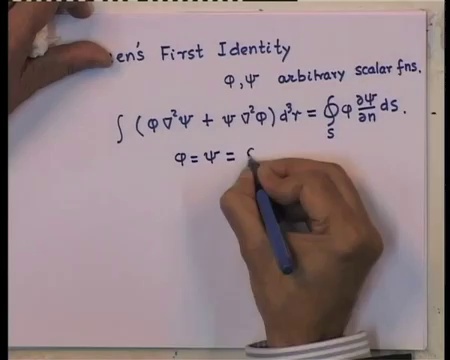 en's First Identity
φ, ψ arbitrary scalar fns.
∫ (φ ∇²ψ + ψ ∇²φ) d³r = ∮_S φ ∂ψ/∂n dS.
φ = ψ =